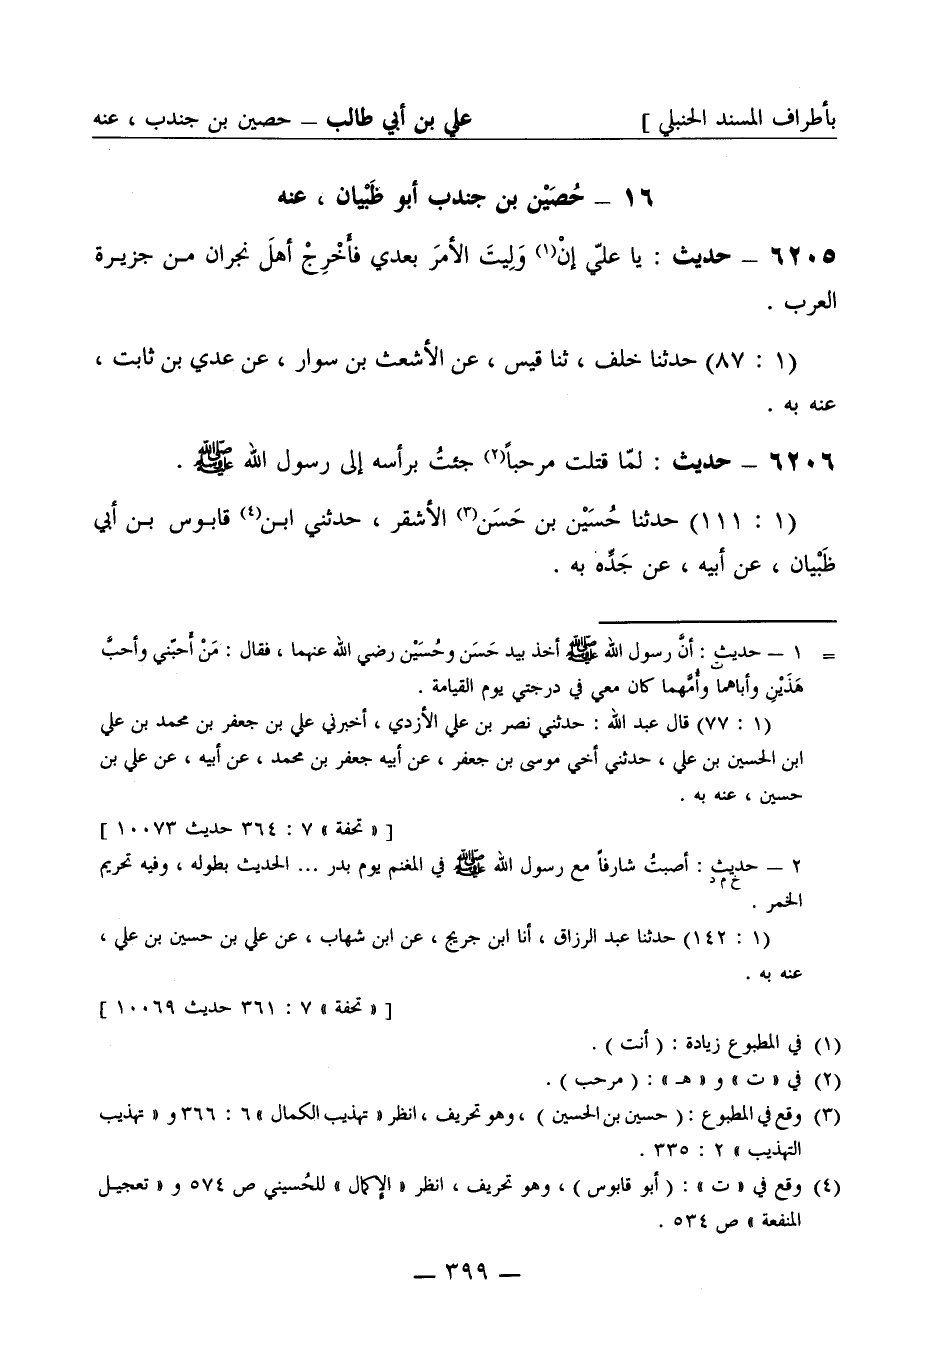 بأطراف المسند الحنبلي ] علي بن أبي طالب ـ حصين بن جندب ، عنه
١٦ ـ حُصَيْن بن جندب أبو ظَبْيان ، عنه
٦٢٠٥ ـ حديث : يا عليّ إنْ(١) وَلِيتَ الأمرَ بعدي فأَخْرِجْ أهلَ نجران مـن جزيـرة
العرب .
(١ : ٨٧) حدثنا خلف ، ثنا قيس ، عن الأشعث بن سوار ، عن عدي بن ثابت ،
عنه به .
٦٢٠٦ ـ حديث : لمّا قتلت مرحباً(٢) جئتُ برأسه إلى رسول الله ﷺ .
(١ : ١١١) حدثنا حُسَيْن بن حَسَن(٣) الأشقر ، حدثني ابـن(٤) قابـوس بـن أبي
ظَبْيان ، عن أبيه ، عن جَدِّه به .
= ١ ـ حديث : أنَّ رسول الله ﷺ أخذ بيد حَسَن وحُسَيْن رضي الله عنهما ، فقال : مَنْ أَحبّني وأحبَّ
ت
هَذَيْنِ وأباهما وأُمَّهما كان معي في درجتي يوم القيامة .
(١ : ٧٧) قال عبد الله : حدثني نصر بن علي الأزدي ، أخبرني علي بن جعفر بن محمد بن علي
ابن الحسين بن علي ، حدثني أخي موسى بن جعفر ، عن أبيه جعفر بن محمد ، عن أبيه ، عن علي بن
حسين ، عنه به .
[ « تحفة » ٧ : ٣٦٤ حديث ١٠٠٧٣ ]
٢ ـ حديث : أصبتُ شارفاً مع رسول الله ﷺ في المغنم يوم بدر ... الحديث بطوله ، وفيه تحريم
خ م د
الخمر .
(١ : ١٤٢) حدثنا عبد الرزاق ، أنا ابن جريج ، عن ابن شهاب ، عن علي بن حسين بن علي ،
عنه به .
[ « تحفة » ٧ : ٣٦١ حديث ١٠٠٦٩ ]
(١) في المطبوع زيادة : ( أنت ) .
(٢) في « ت » و « هـ » : ( مرحب ) .
(٣) وقع في المطبوع : ( حسين بن الحسين ) ، وهو تحريف ، انظر « تهذيب الكمال » ٦ : ٣٦٦ و « تهذيب
التهذيب » ٢ : ٣٣٥ .
(٤) وقع في « ت » : ( أبو قابوس ) ، وهو تحريف ، انظر « الإكمال » للحُسيني ص ٥٧٤ و « تعجيـل
المنفعة » ص ٥٣٤ .
ـ ٣٩٩ ـ